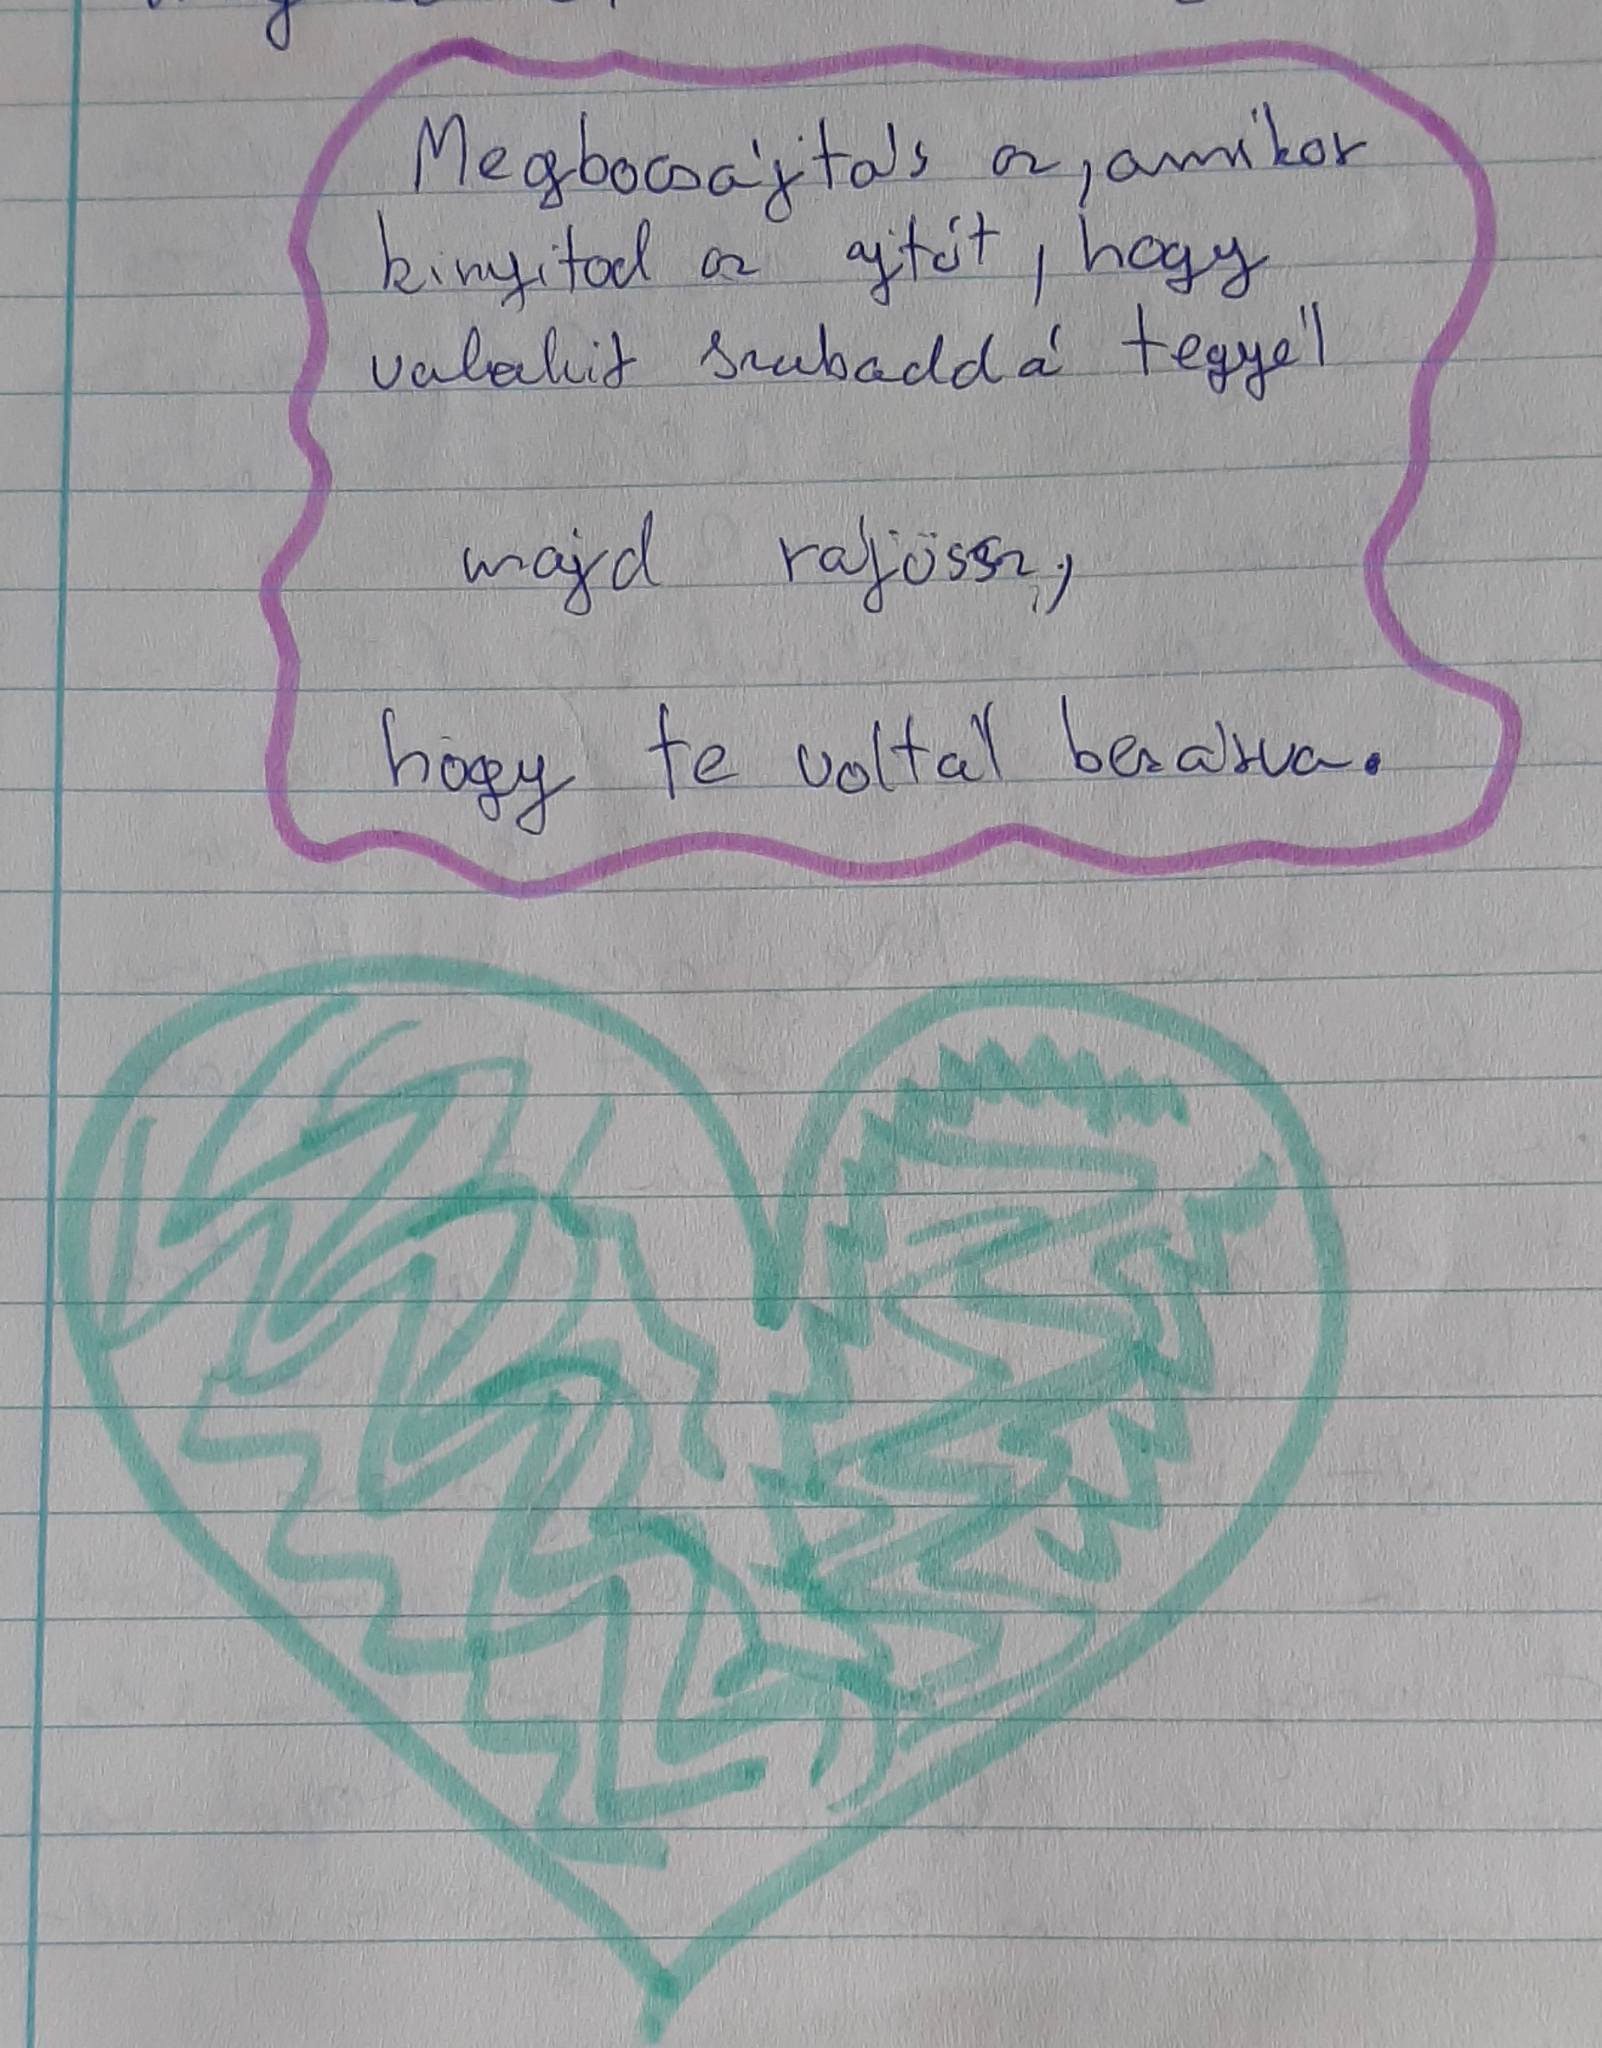 Megbocsájtás az, amikor
kinyitod az ajtót, hogy
valakit szabaddá tegyél
majd rájössz,
hogy te voltál bezárva.